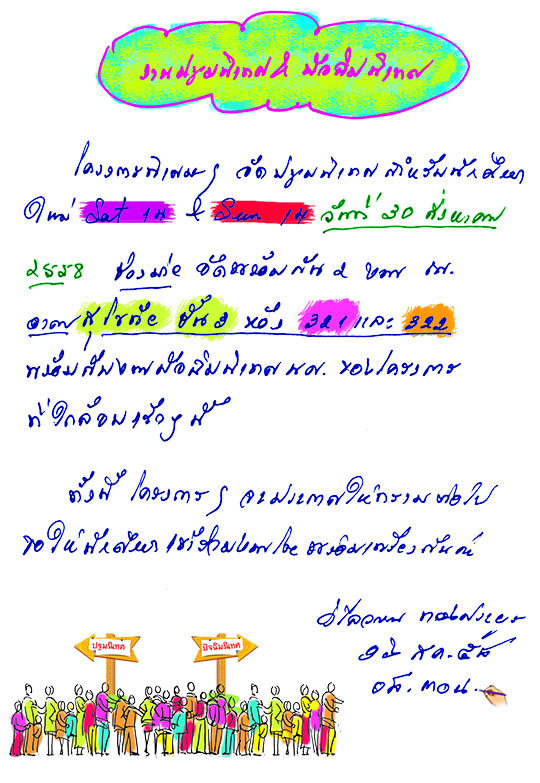 งานปฐมนิเทศ & ปัจฉิมนิเทศ
โครงการพิเศษฯ จัดปฐมนิเทศสำหรับนักศึกษา
ใหม่ Sat 14 & Sun 14 วันที่ 30 สิงหาคม
2558 ช่วงบ่าย จัดพร้อมกัน 2
อาคารสุโขทัย ชั้น 3 ห้อง 321 และ 322
พร้อมกับงานปัจฉิมนิเทศ นศ. ของโครงการ
ที่ใกล้จบเร็วๆ นี้
ทั้งนี้ โครงการฯ จะประกาศให้ทราบต่อไป
ขอให้นักศึกษาเข้าร่วมงานโดยพร้อมเพรียงกันค่ะ
ปฐมนิเทศ
ปัจฉิมนิเทศ